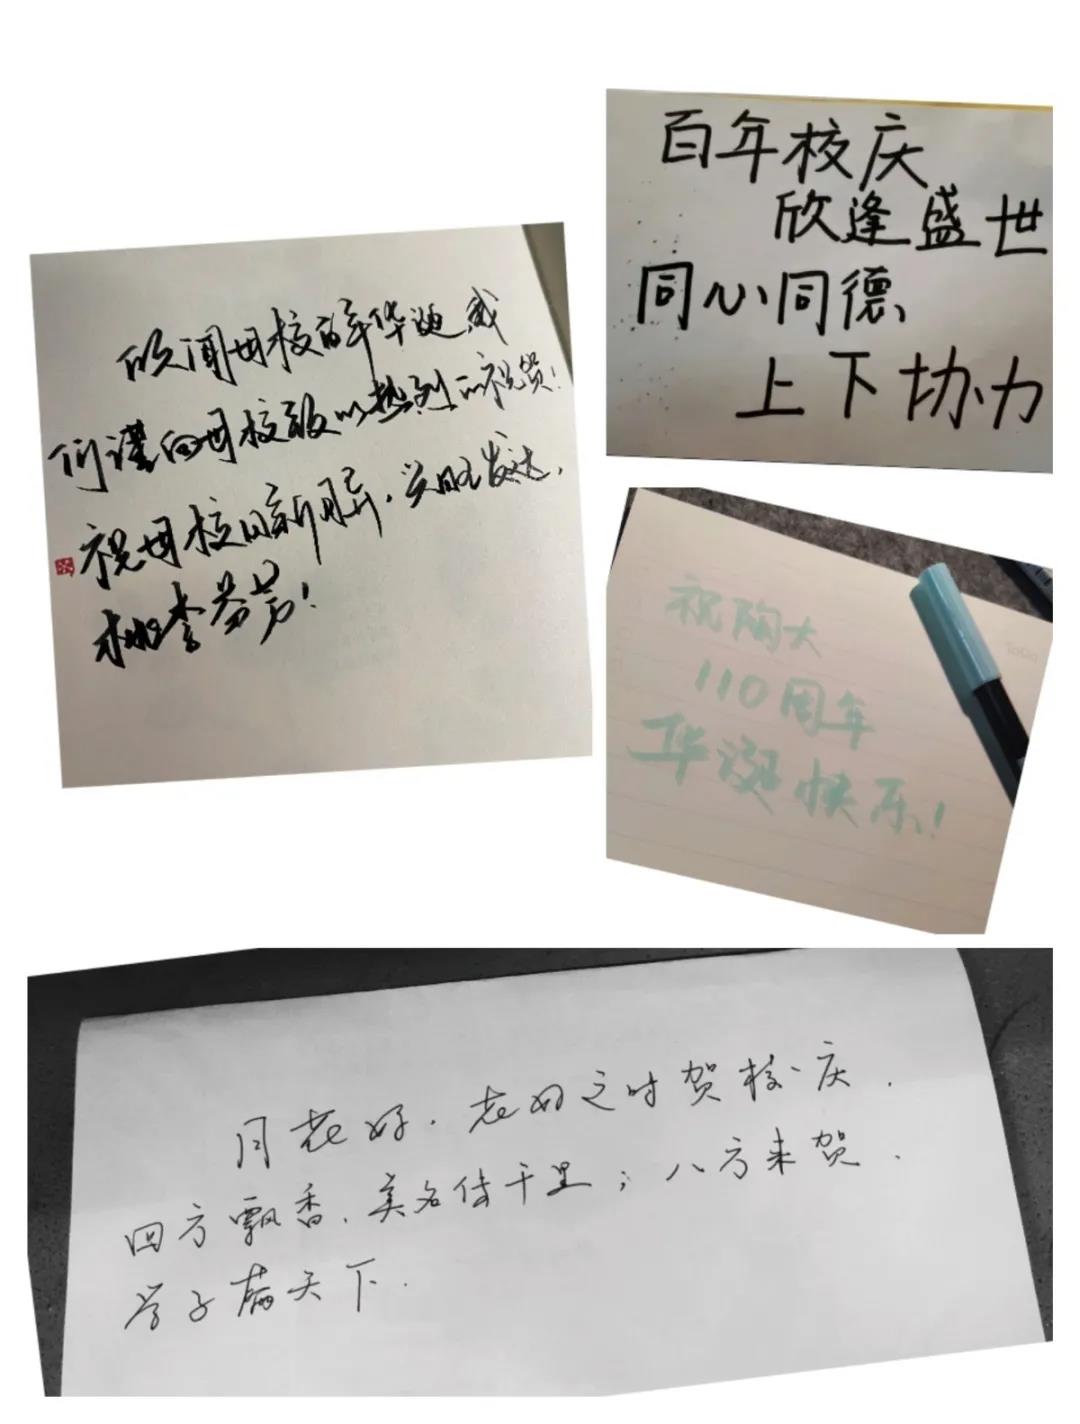 欣闻母校百年华诞,我
们谨向母校致以热烈的祝贺!
祝母校日新月异、兴旺发达,
桃李芬芳!
百年校庆
欣逢盛世
同心同德、
上下协力
祝陶大
110周年
华诞快乐!
月花好,花好之时贺校庆,
四方飘香,美名传千里;八方来贺,
学子满天下.